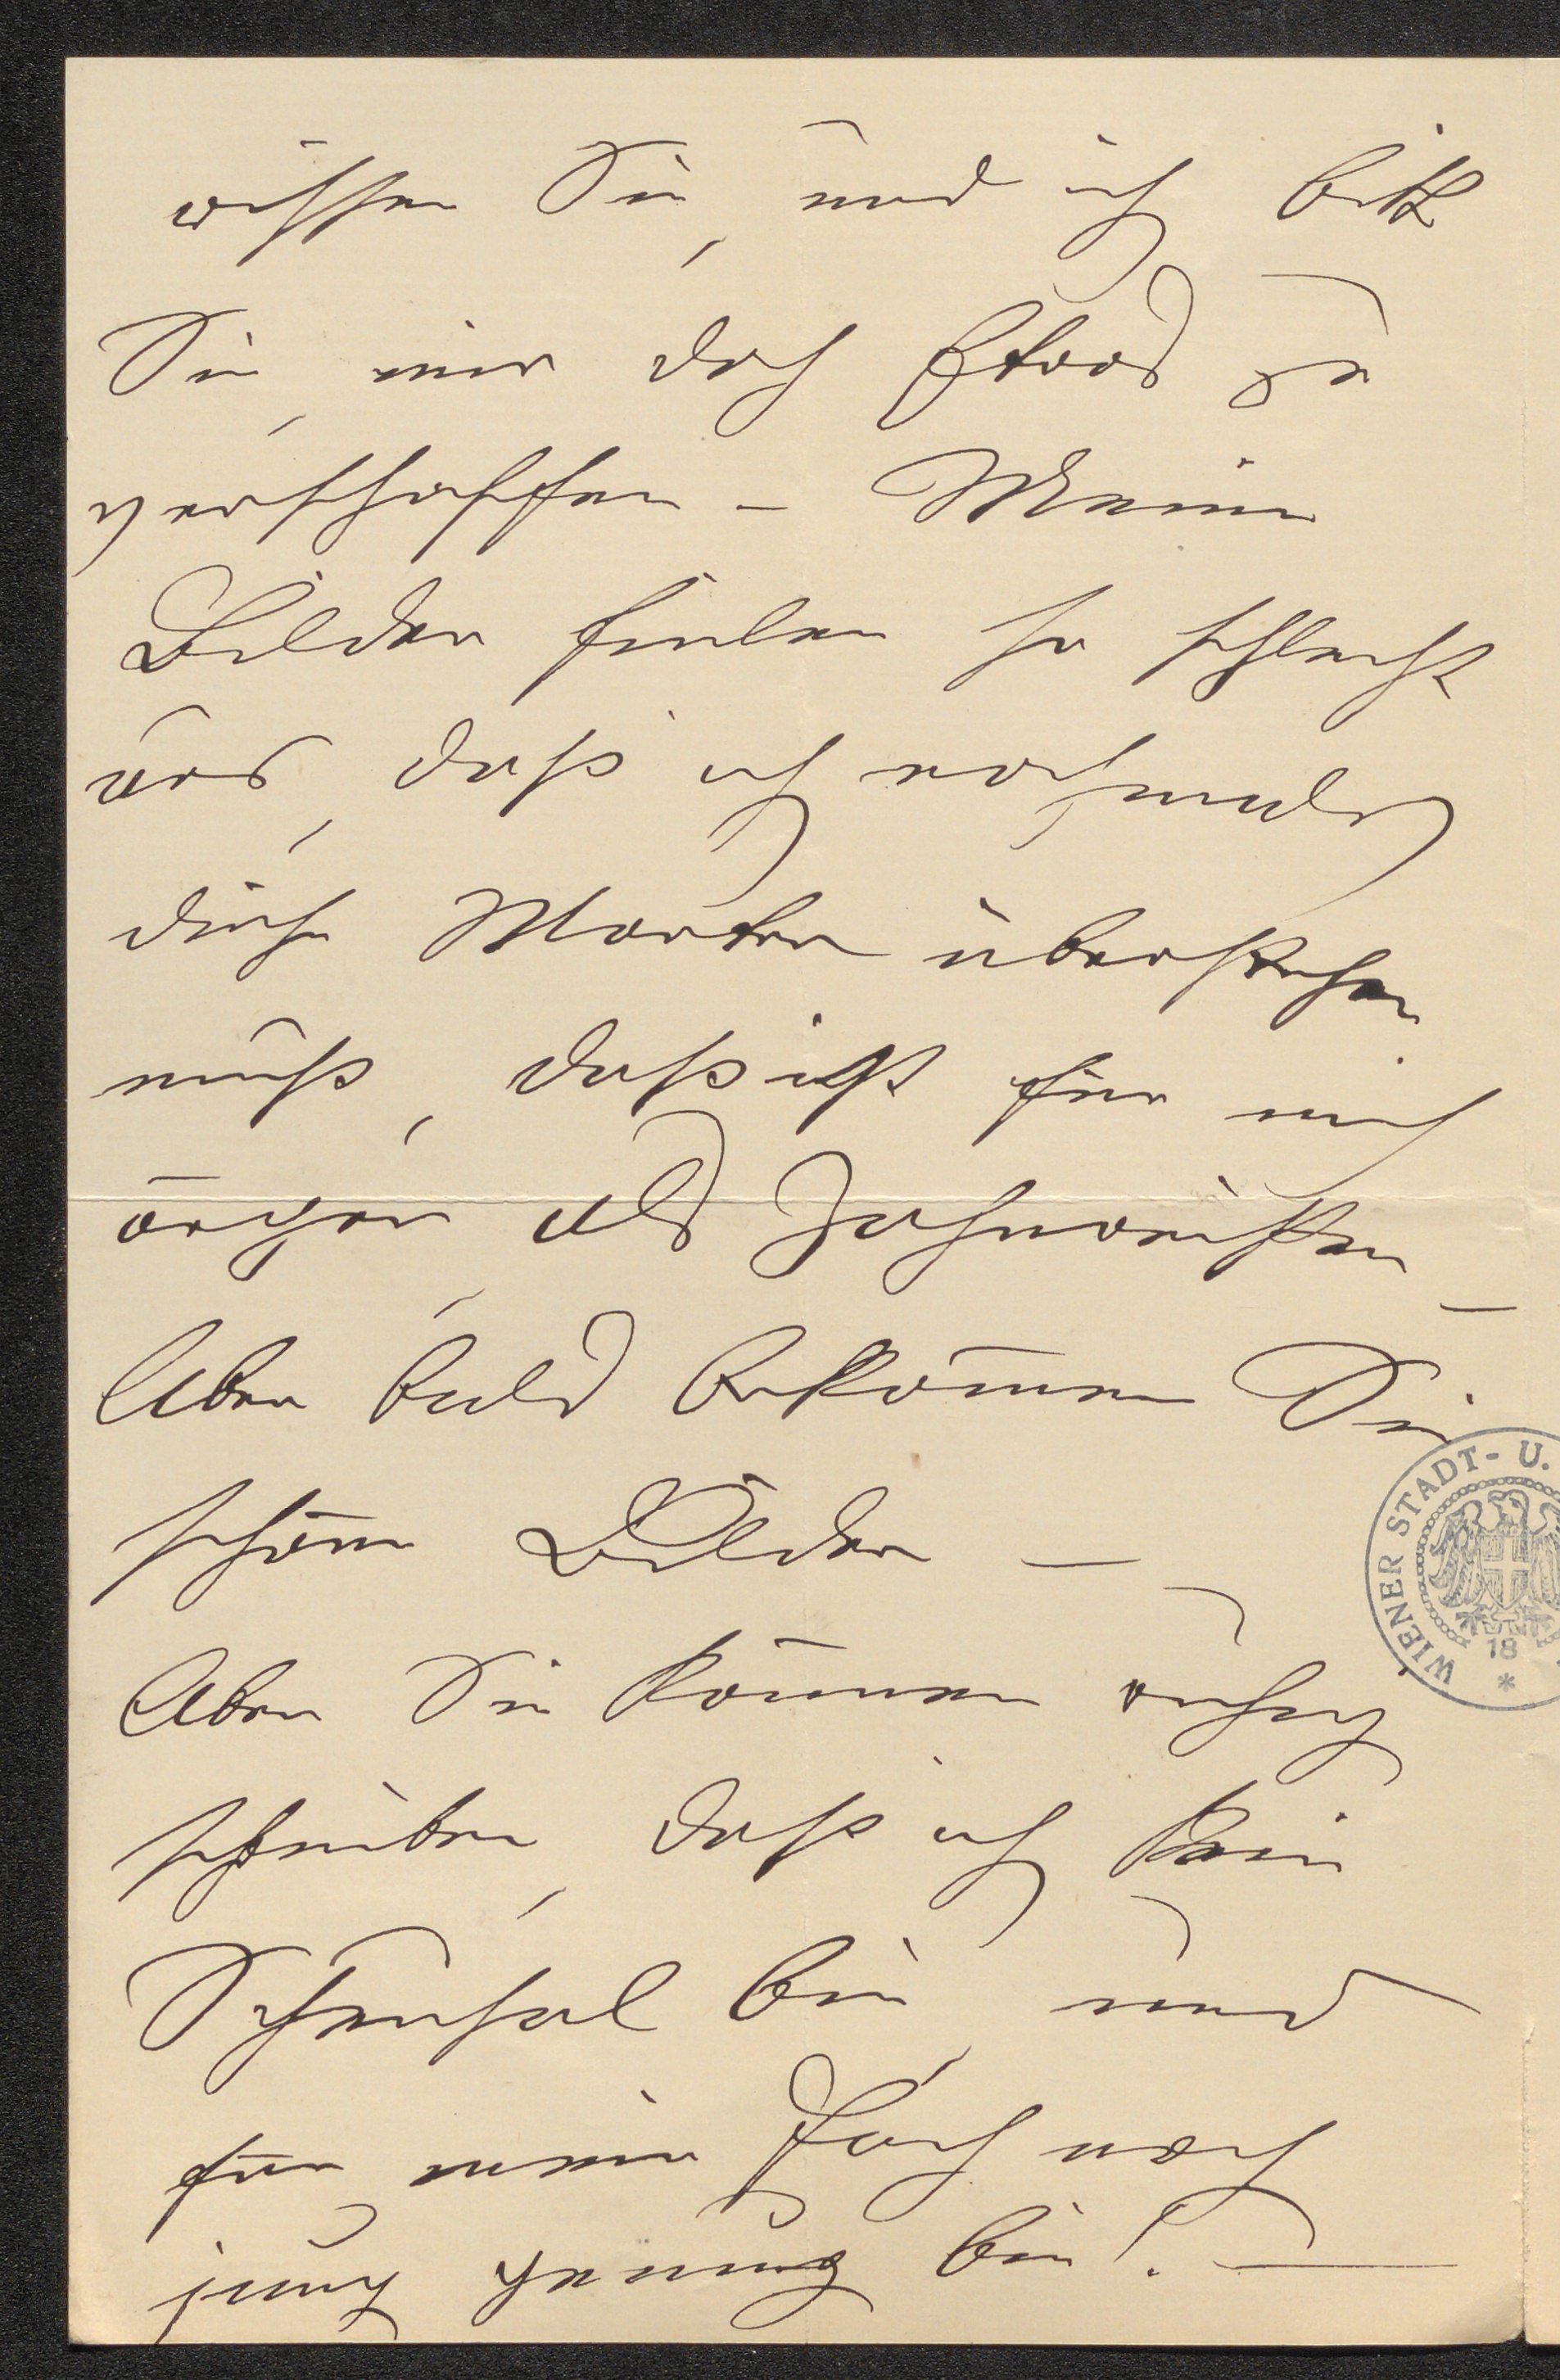 wissen Sie, und ich bitte
Sie, mir doch Etwas zu
verschaffen – Meine
Bilder fielen so schlecht
aus, daß ich nochmals
diese Marter überstehen
muß, daß ist für mich
ärger, als Zahnreißen –
Aber bald bekommen Sie
schöne Bilder –
Aber Sie können ruhig
schreiben, daß ich kein
Scheusal bin, und
für mein Fach noch
jung genug bin! –
WIENER STADT- U.
18
*